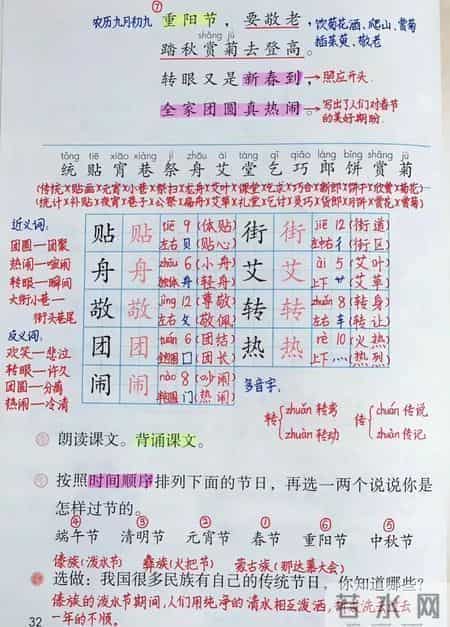 ⑦
农历九月初九 重阳节，要敬老， 饮菊花酒、爬山、赏菊
shāng jú
踏秋赏菊去登高。 插茱萸、敬老
转眼又是新春到，→照应开头.
全家团圆真热闹。→写出了人们对春节
的美好期盼.
tǒng tiē xiāo xiàng jì zhōu ài táng qǐ qiǎo láng bǐng shǎng jú
统 贴 宵 巷 祭 舟 艾 堂 乞 巧 郎 饼 赏 菊
(传统)(贴画)(元宵)(小巷)(祭扫)(龙舟)(艾叶)(课堂)(乞求)(巧合)(新郎)(饼干)(欣赏)(菊花)
(统计)(补贴)(夜宵)(巷子)(公祭)(扁舟)(艾草)(礼堂)(乞讨)(灵巧)(货郎)(月饼)(赏花)(赏菊)
近义词:
团圆—团聚
热闹—喧闹
转眼—瞬间
大街小巷—
街头巷尾
反义词:
欢笑—悲泣
转眼—许久
团圆—分离
热闹—冷清
贴 贴 tiē 9 (体贴) 左右 贝 (贴心)
街 街 jiē 12 (街道) 左右 彳 (街区)
舟 舟 zhōu 6 (小舟) 独体 舟 (轻舟)
艾 艾 ài 5 (艾叶) 上下 艹 (艾草)
敬 敬 jìng 12 (尊敬) 左右 攵 (敬佩)
转 转 zhuǎn 8 (转身) 左右 车 (转让)
团 团 tuán 6 (团结) 囗 (团长)
热 热 rè 10 (火热) 上下 灬 (热列)
闹 闹 nào 8 (吵闹) 门 (热闹)
多音字:
转 zhuǎn 转弯 zhuàn 转动
传 chuán 传说 zhuàn 传记
朗读课文。背诵课文。
按照时间顺序排列下面的节日，再选一两个说说你是
怎样过节的。
④ ③ ② ① ⑥ ⑤
端午节 清明节 元宵节 春节 重阳节 中秋节
傣族(泼水节) 彝族(火把节) 蒙古族(那达慕大会)
选做：我国很多民族有自己的传统节日，你知道哪些？
傣族的泼水节期间,人们用纯净的清水相互泼洒,
32 一年的不顺。
若水网